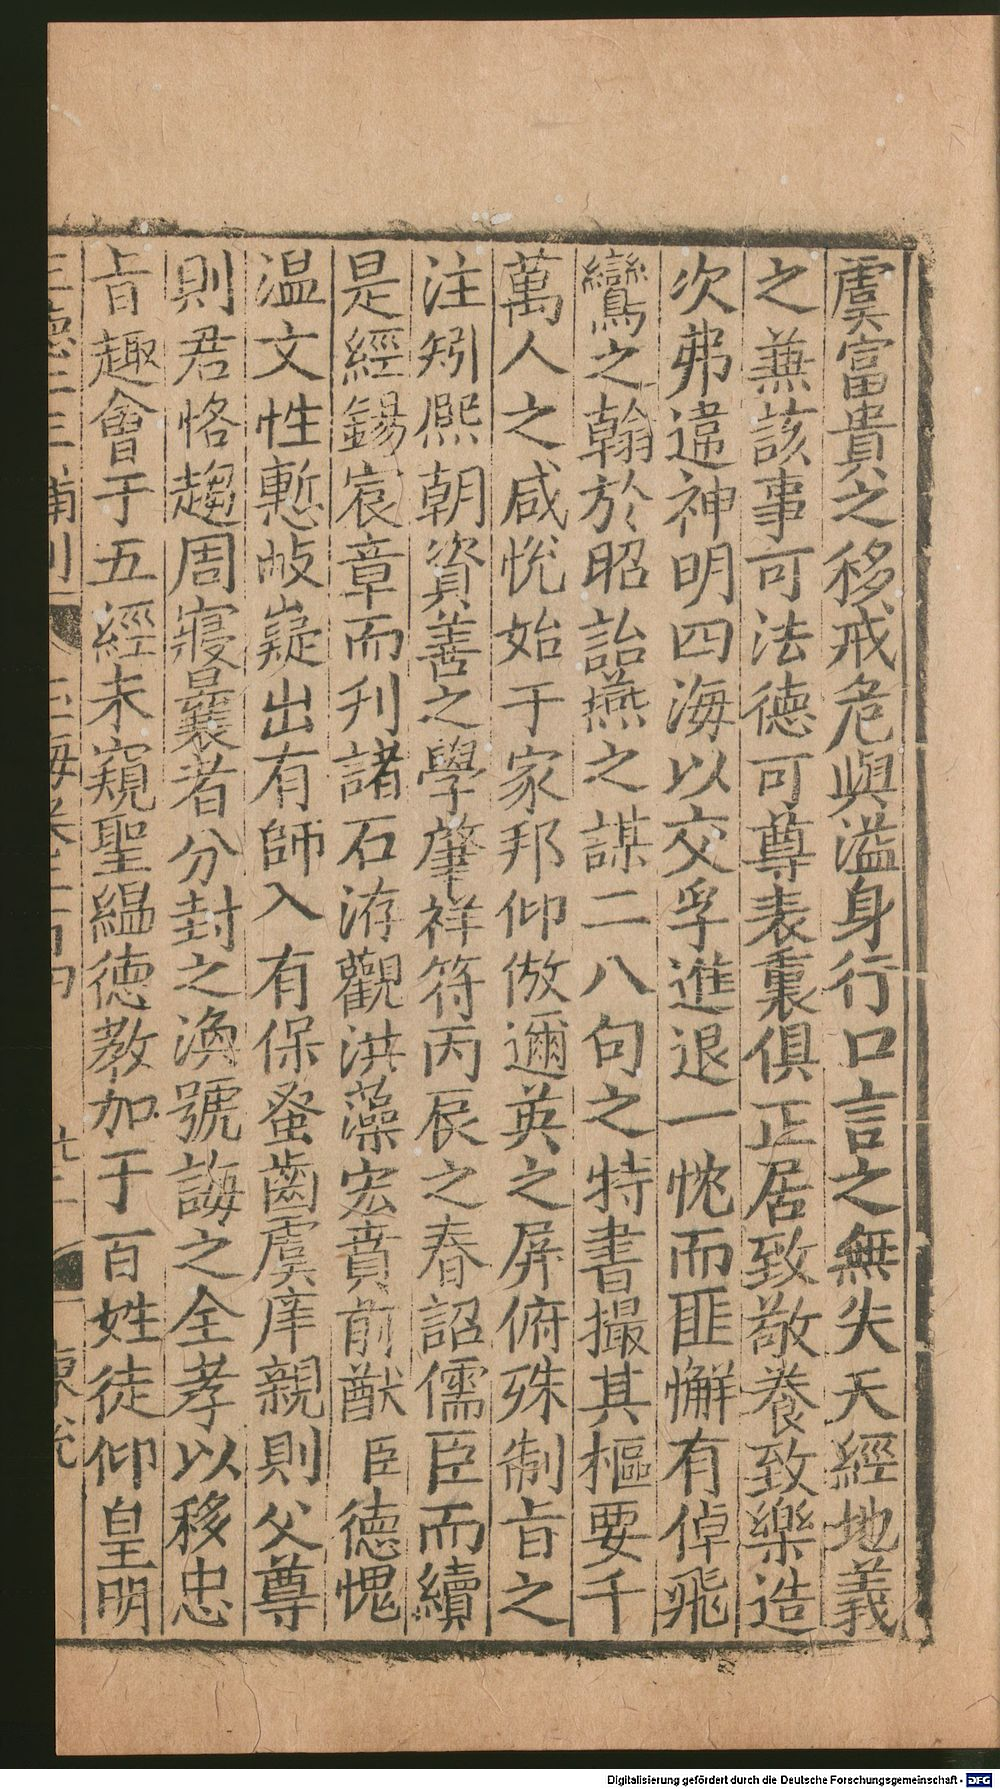 虞富貴之移戒危與溢身行口言之無失天經地義
之兼該事可法德可尊表裏俱正居致敬養致樂造
次弗違神明四海以交孚進退一忱而匪懈有倬飛
鸞之翰於昭詒燕之謀二八句之特書撮其樞要千
萬人之咸悅始于家邦仰倣邇英之屏俯殊制旨之
注矧熙朝資善之學肇祥符丙辰之春詔儒臣而續
是經錫宸章而刋諸石洊觀洪藻宏賁前猷臣德愧
温文性慙岐嶷出有師入有保蚤齒虞庠親則父尊
則君恪趨周寢曩者分封之渙號誨之全孝以移忠
旨趣會于五經未窺聖緼德教加于百姓徒仰皇明
補刊 玉海卷二百四